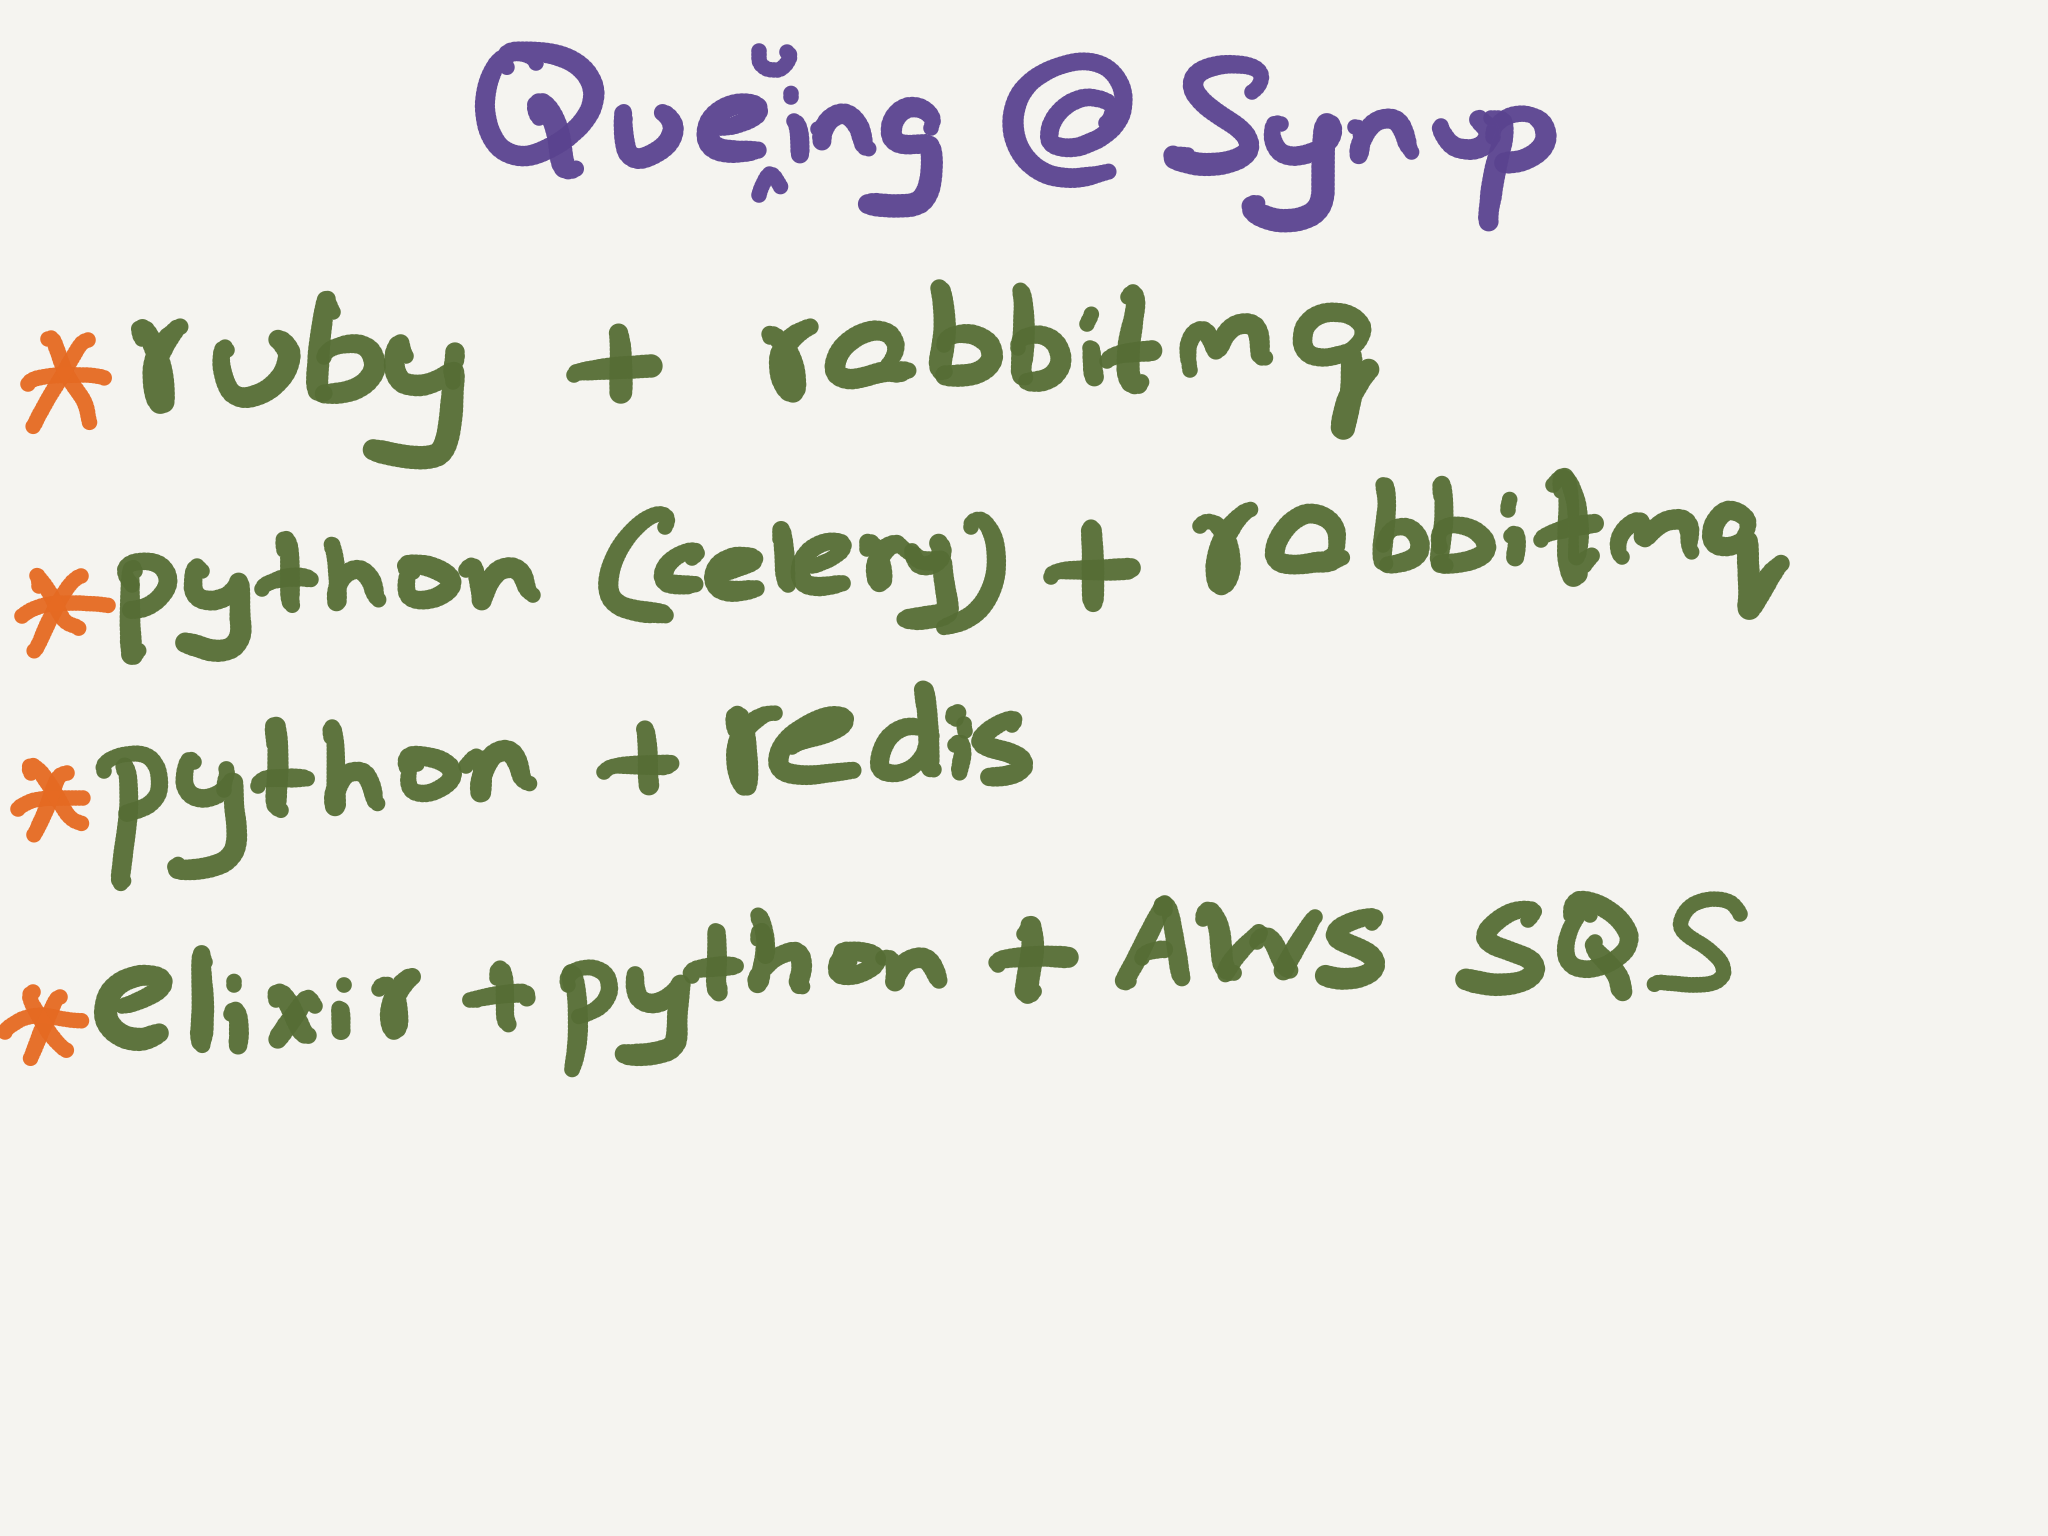 Queuing @ Synup
* ruby + rabbitmq
* python (celery) + rabbitmq
* python + redis
* elixir + python + AWS SQS